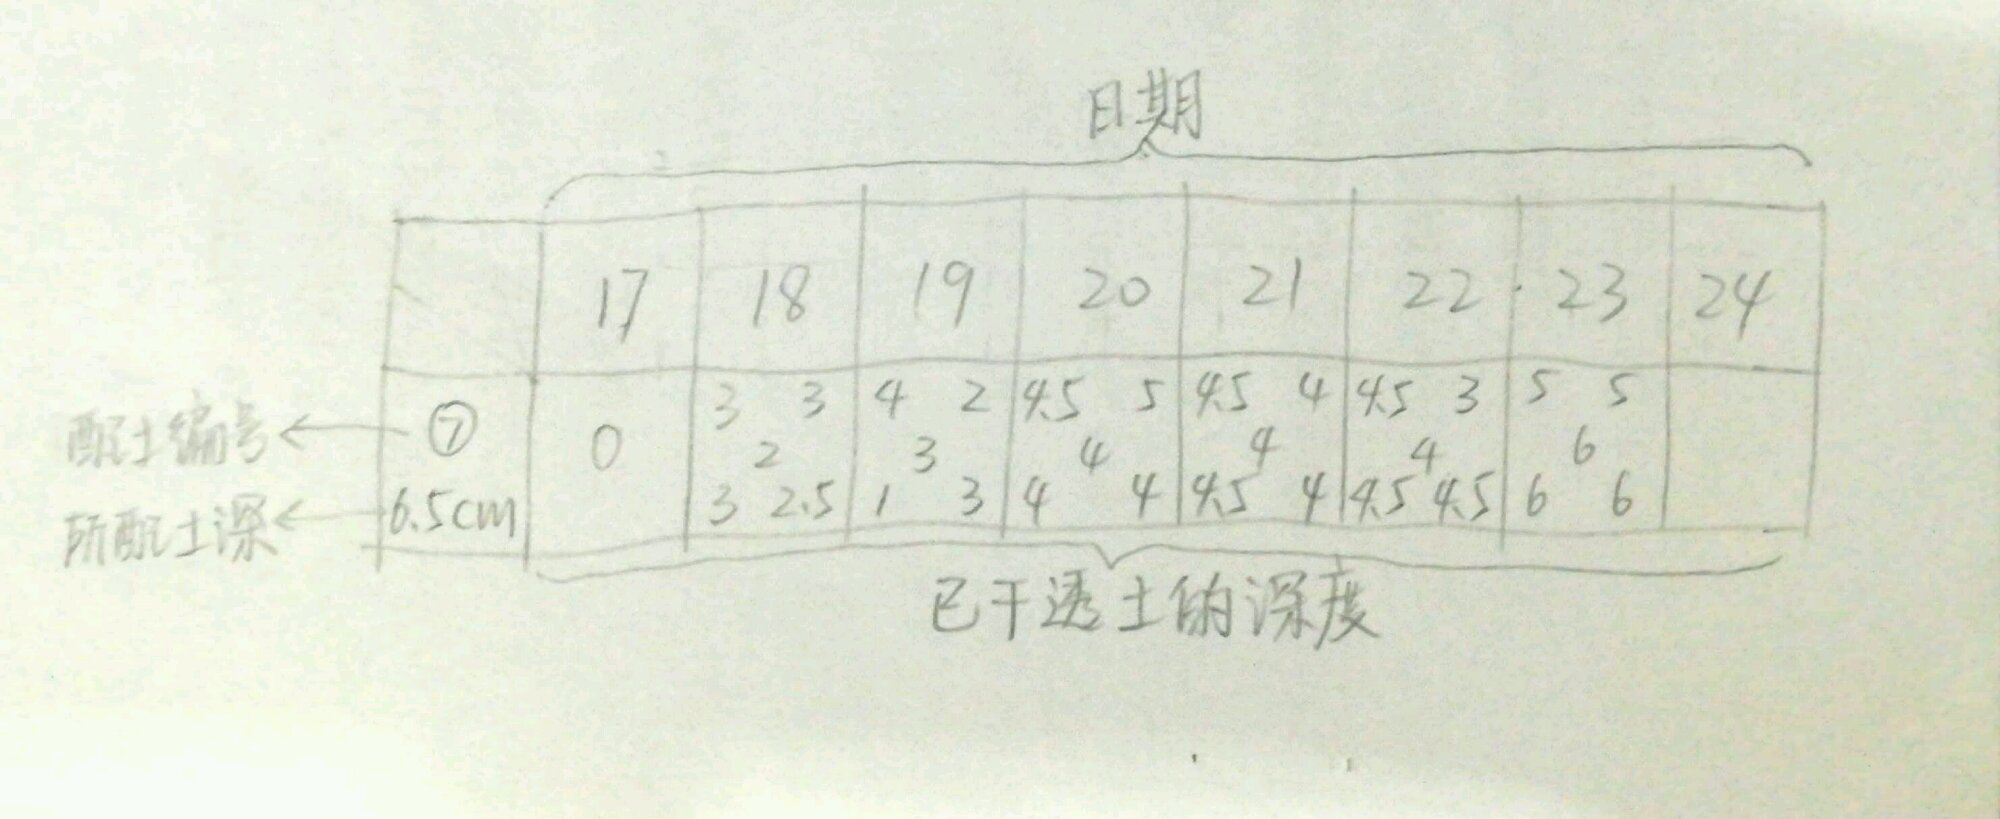 日期
17 18 19 20 21 22 23 24
3 3 4 2 4.5 5 4.5 4 4.5 3 5 5
配土编号 ⑦ 0 2 3 4 4 4 6
所配土深 6.5cm 3 2.5 1 3 4 4 4.5 4 4.5 4.5 6 6
已干透土的深度